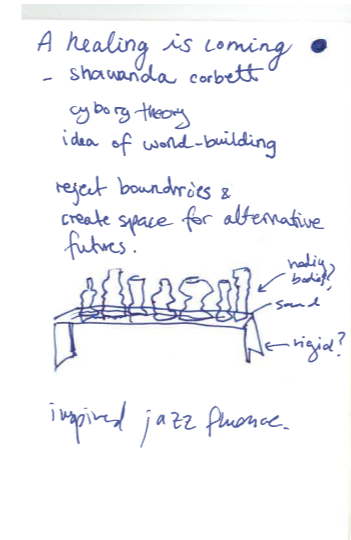 A healing is coming
- shawanda corbett
cyborg theory
idea of world-building
reject boundries &
create space for alternative
futures.
bodies?
sand
rigid?
inspired jazz